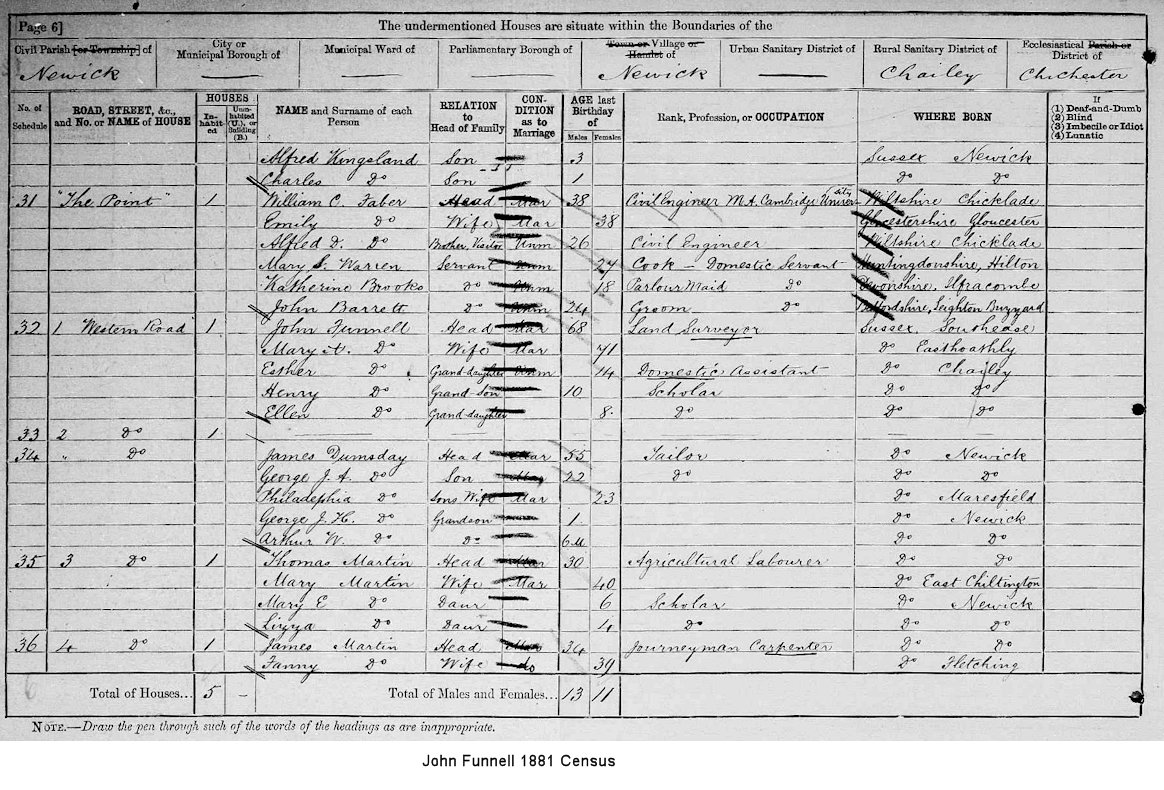 Page 6] The undermentioned Houses are situate within the Boundaries of the
Civil Parish [or Township] of City or Municipal Borough of Municipal Ward of Parliamentary Borough of Town or Village or Hamlet of Urban Sanitary District of Rural Sanitary District of Ecclesiastical Parish or District of
Newick — — — Newick — Chailey Chichester
No. of Schedule ROAD, STREET, &c., and No. or NAME of HOUSE HOUSES Inhabited Uninhabited (U.), or Building (B.) NAME and Surname of each Person RELATION to Head of Family CONDITION as to Marriage AGE last Birthday of Males Females Rank, Profession, or OCCUPATION WHERE BORN If (1) Deaf-and-Dumb (2) Blind (3) Imbecile or Idiot (4) Lunatic
Alfred Kingsland Son 3 Sussex Newick
Charles Do Son 1 Do Do
31 "The Point" 1 William C. Faber Head Mar 38 Civil Engineer M.A. Cambridge University Wiltshire Chicklade
Emily Do Wife Mar 38 Glocestershire Gloucester
Alfred D. Do Brother, Visitor Unm 26 Civil Engineer Wiltshire Chicklade
Mary S. Warren Servant Unm 27 Cook - Domestic Servant Huntingdonshire, Hilton
Katherine Brooks Do Unm 18 Parlour Maid Do Devonshire, Ilfracombe
John Barrett Do Unm 24 Groom Do Bedfordshire, Leighton Buzzard
32 1 Western Road 1 John Funnell Head Mar 68 Land Surveyor Sussex Southease
Mary A. Do Wife Mar 71 Do Easthoathly
Esther Do Grand-daughter Unm 14 Domestic Assistant Do Chailey
Henry Do Grand-son 10 Scholar Do Do
Ellen Do Grand-daughter 8 Do Do Do
33 2 Do 1
34 " Do James Dumsday Head Mar 55 Tailor Do Newick
George J. A. Do Son Mar 22 Do Do Do
Philadephia Do Sons Wife Mar 23 Do Maresfield
George J. H. Do Grandson 1 Do Newick
Arthur W. Do Do 6M Do Do
35 3 Do 1 Thomas Martin Head Mar 30 Agricultural Labourer Do Do
Mary Martin Wife Mar 40 Do East Chiltington
Mary E Do Daur 6 Scholar Do Newick
Lizza Do Daur 4 Do Do Do
36 4 Do 1 James Martin Head Mar 34 Journeyman Carpenter Do Do
Fanny Do Wife do 39 Do Fletching
6 Total of Houses... 5 – Total of Males and Females... 13 11
NOTE.—Draw the pen through such of the words of the headings as are inappropriate.
John Funnell 1881 Census